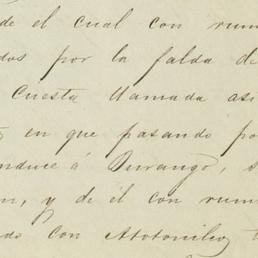 de el cual con rum
dos por la falda de
Cuesta llamada asi
en que pasando po
nduce á Durango, s
n, y de él con rum
do con Atotonilco